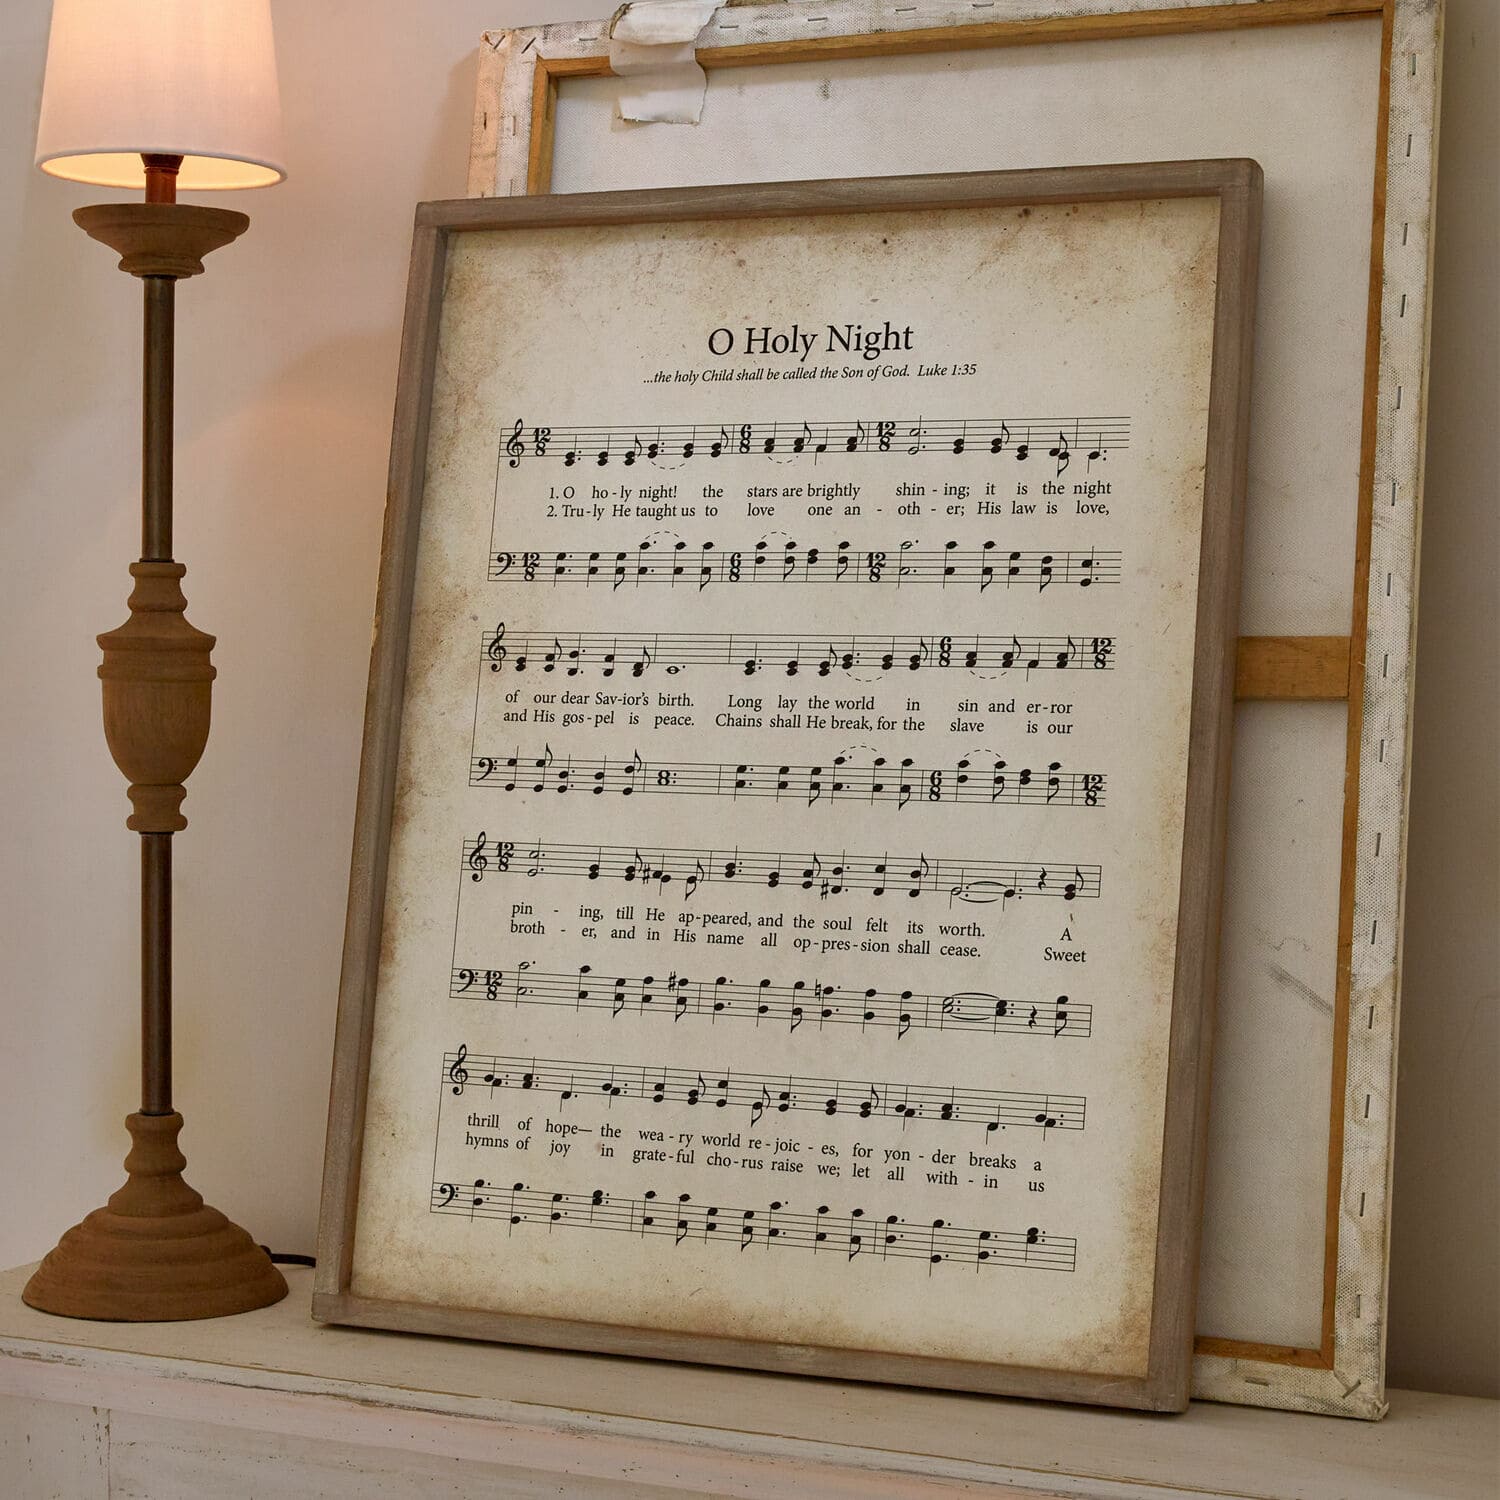 O Holy Night
...the holy Child shall be called the Son of God. Luke 1:35
12 8 6 8 12 8
1. O ho - ly night! the stars are brightly shin - ing; it is the night
2. Tru - ly He taught us to love one an - oth - er; His law is love,
12 8 6 8 12 8
6 8 12 8
of our dear Sav-ior's birth. Long lay the world in sin and er-ror
and His gos - pel is peace. Chains shall He break, for the slave is our
6 8 12 8
12 8
pin - ing, till He ap-peared, and the soul felt its worth. A
broth - er, and in His name all op-pres-sion shall cease. Sweet
12 8
thrill of hope— the wea - ry world re - joic - es, for yon - der breaks a
hymns of joy in grate - ful cho - rus raise we; let all with - in us